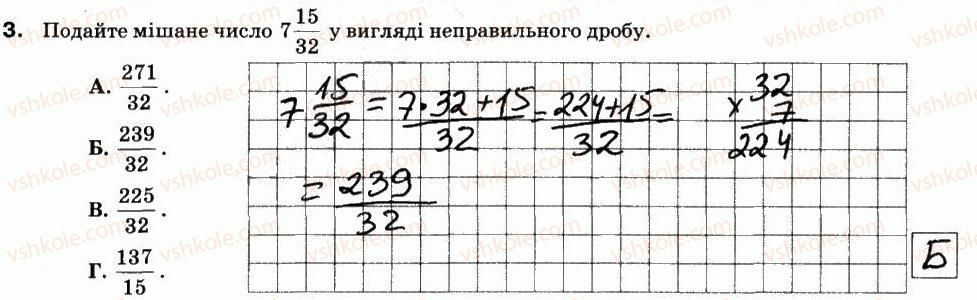 3. Подайте мішане число 7 15/32 у вигляді неправильного дробу.
А. 271/32 .
Б. 239/32 .
В. 225/32 .
Г. 137/15 .
7 15/32 = 7·32+15/32 = 224+15/32 =
= 239/32
32
× 7
224
Б
vshkole.com